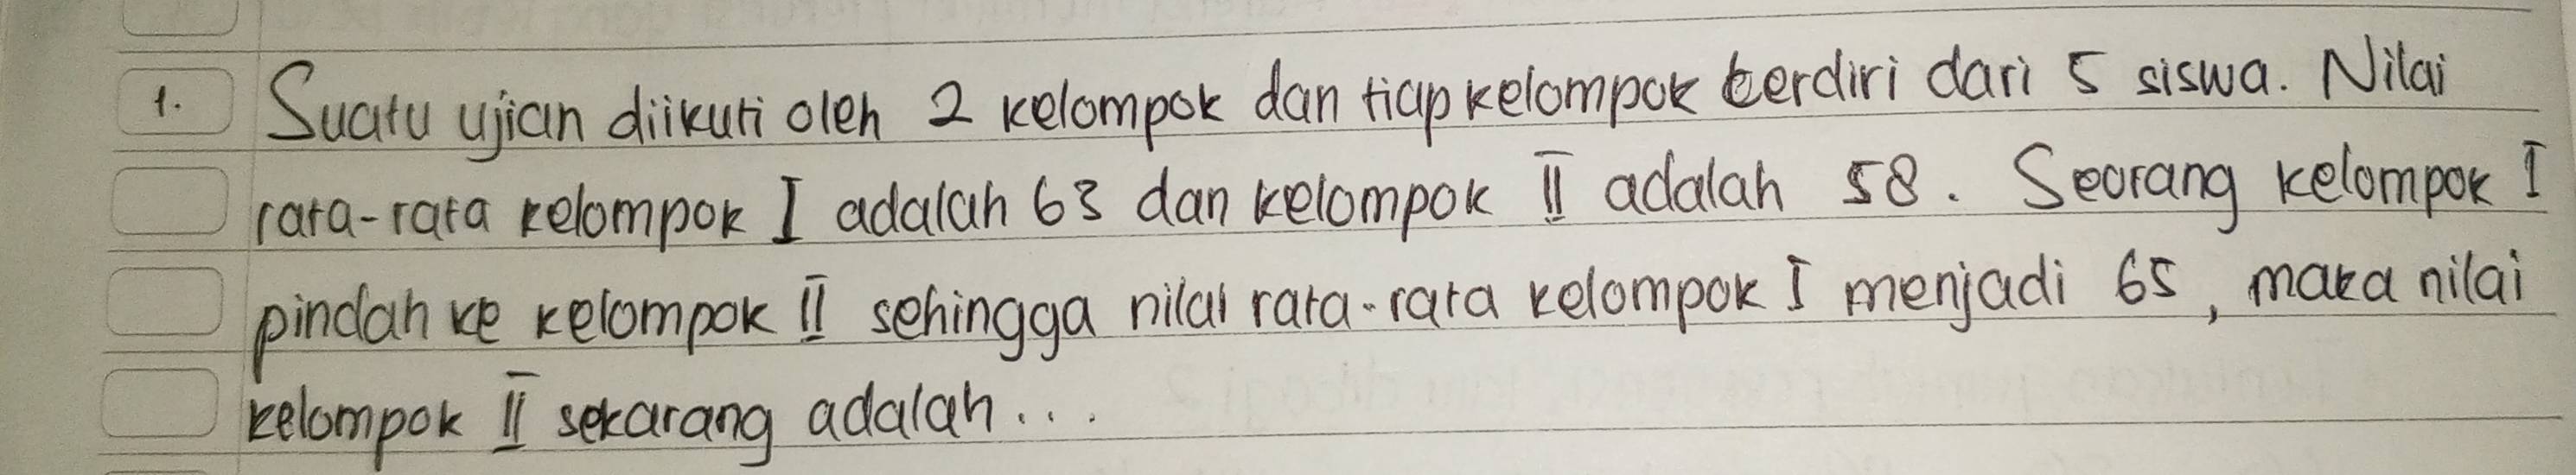 1. Suatu ujian diikuti oleh 2 kelompok dan tiap kelompok terdiri dari 5 siswa. Nilai
rata-rata kelompok I adalah 63 dan kelompok II adalah 58. Seorang kelompok I
pindah ke kelompok II sehingga nilai rata-rata kelompok I menjadi 65, maka nilai
kelompok II sekarang adalah...